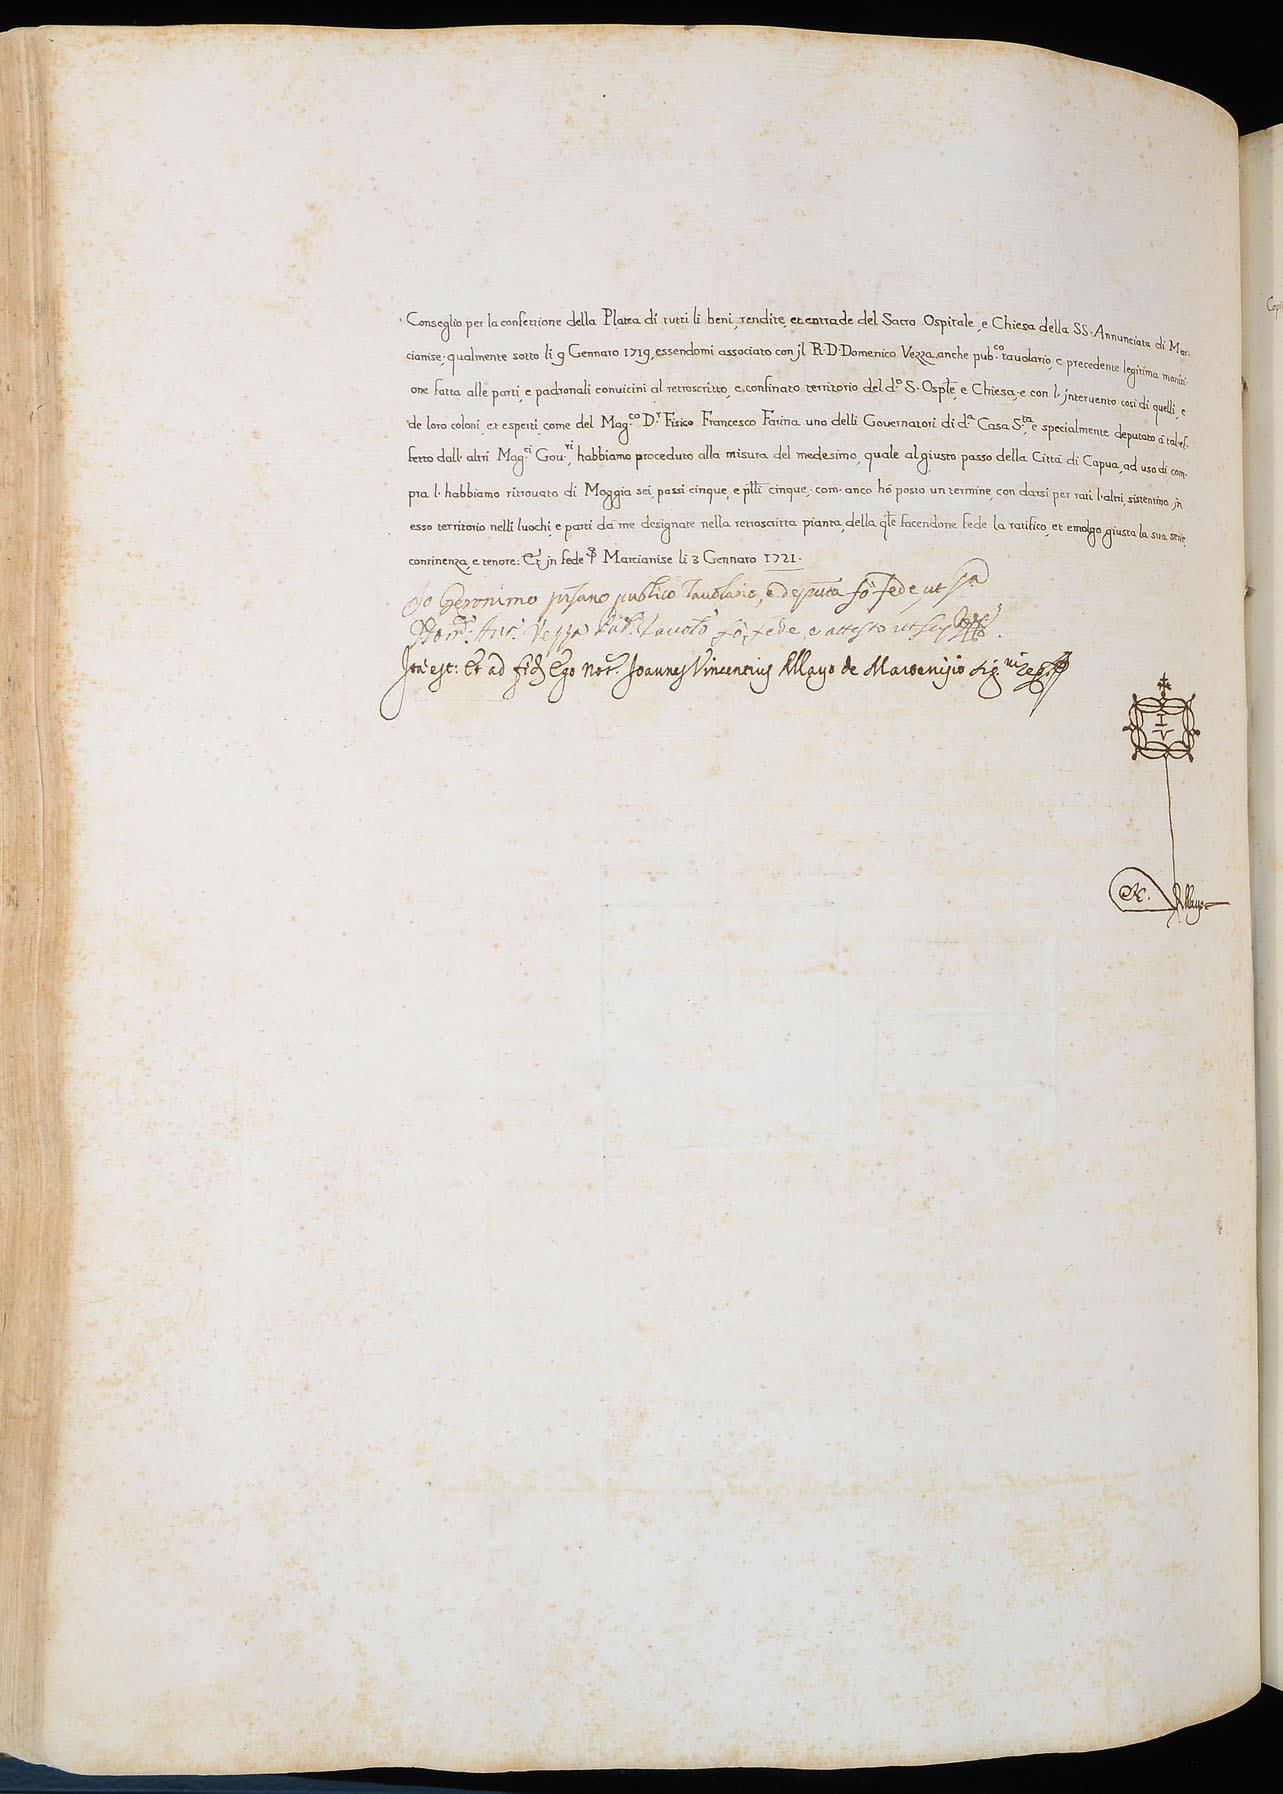 Conseglio per la confettione della Platea di tutti li beni, rendite, et entrade del Sacro Ospitale, e Chiesa della SS. Annunciata di Mar-
cianise; qualmente sotto li 9 Gennaro 1719, essendomi associato con jl R. D. Domenico Vezza anche pub.co tauolario, e precedente legitima moniti-
one fatta alle parti, e padronali conuicini al retroscritto, e confinato territorio del d.o S. Osple, e Chiesa, e con l'jnteruento così di quelli, e
de loro coloni, et esperti, come del Mag.co D.r Fisico Francesco Farina uno delli Gouernatori di d.a Casa S.ta, e specialmente deputato à tal ef-
fetto dall'altri Mag.ci Gou.ri, habbiamo proceduto alla misura del medesimo, quale al giusto passo della Città di Capua, ad uso di com-
pra l'habbiamo ritrouato di Moggia sei, passi cinque, e plli cinque, com'anco hò posto un termine, con darsi per rati l'altri, sistentino jn
esso territorio nelli luochi, e parti da me designate nella retroscritta pianta, della qle facendone fede la ratifico, et emolgo, giusta la sua serie,
continenza, e tenore: Et jn fede Marcianise li 3 Gennaro 1721.
Io Geronimo pisano publico Tauolario, e deputa fò fede, ut sa
Dom. Ant. Vezza Pub. Tauolo fò fede, e attesto ut sup
Ita est: Et ad fid Ego Not. Joannes Vincentius Mayo de Marcenisio sig.
I V
N. Mayo
Copi